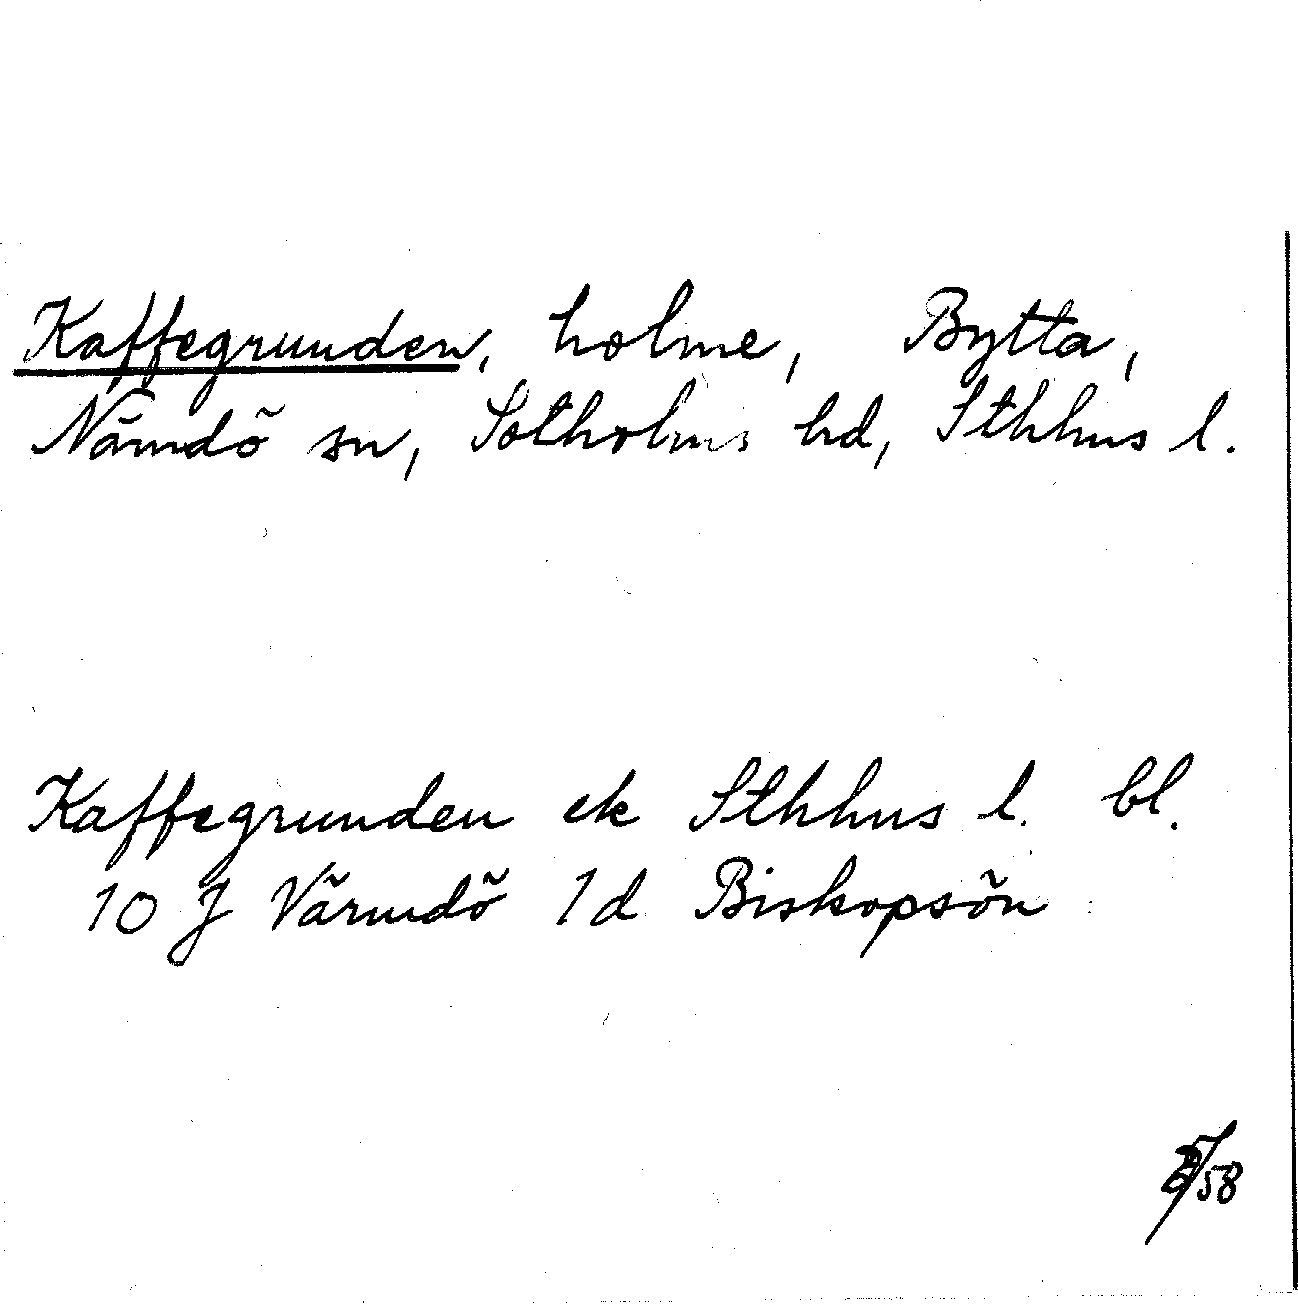 Kaffegrunden, holme, Bytta,
Nämdö sn, Sotholms hd, Sthhus l.
Kaffegrunden ek Sthhus l. bl.
10 J Värmdö 1d Biskopsön
58